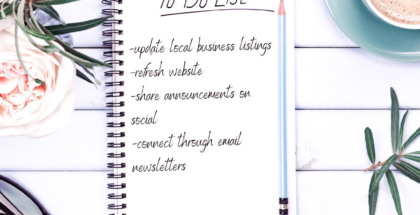 TO DO LIST
-update local business listings
-refresh website
-share announcements on
social
-connect through email
newsletters